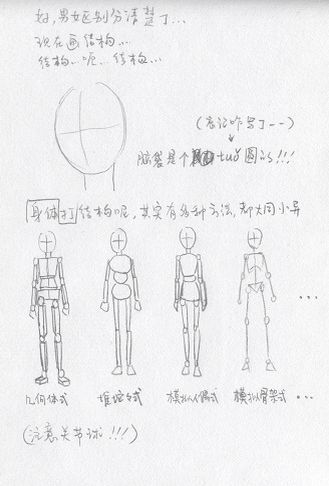 好,男女区别分清楚了...
现在画结构...
结构...呃...结构...
(忘记咋写了--)
脑袋是个tuǒ圆的!!!
身体打结构呢,其实有各种方法,却大同小异
...
几何体式
堆垛式
模拟人偶式
模拟骨架式...
(注意关节球!!!)